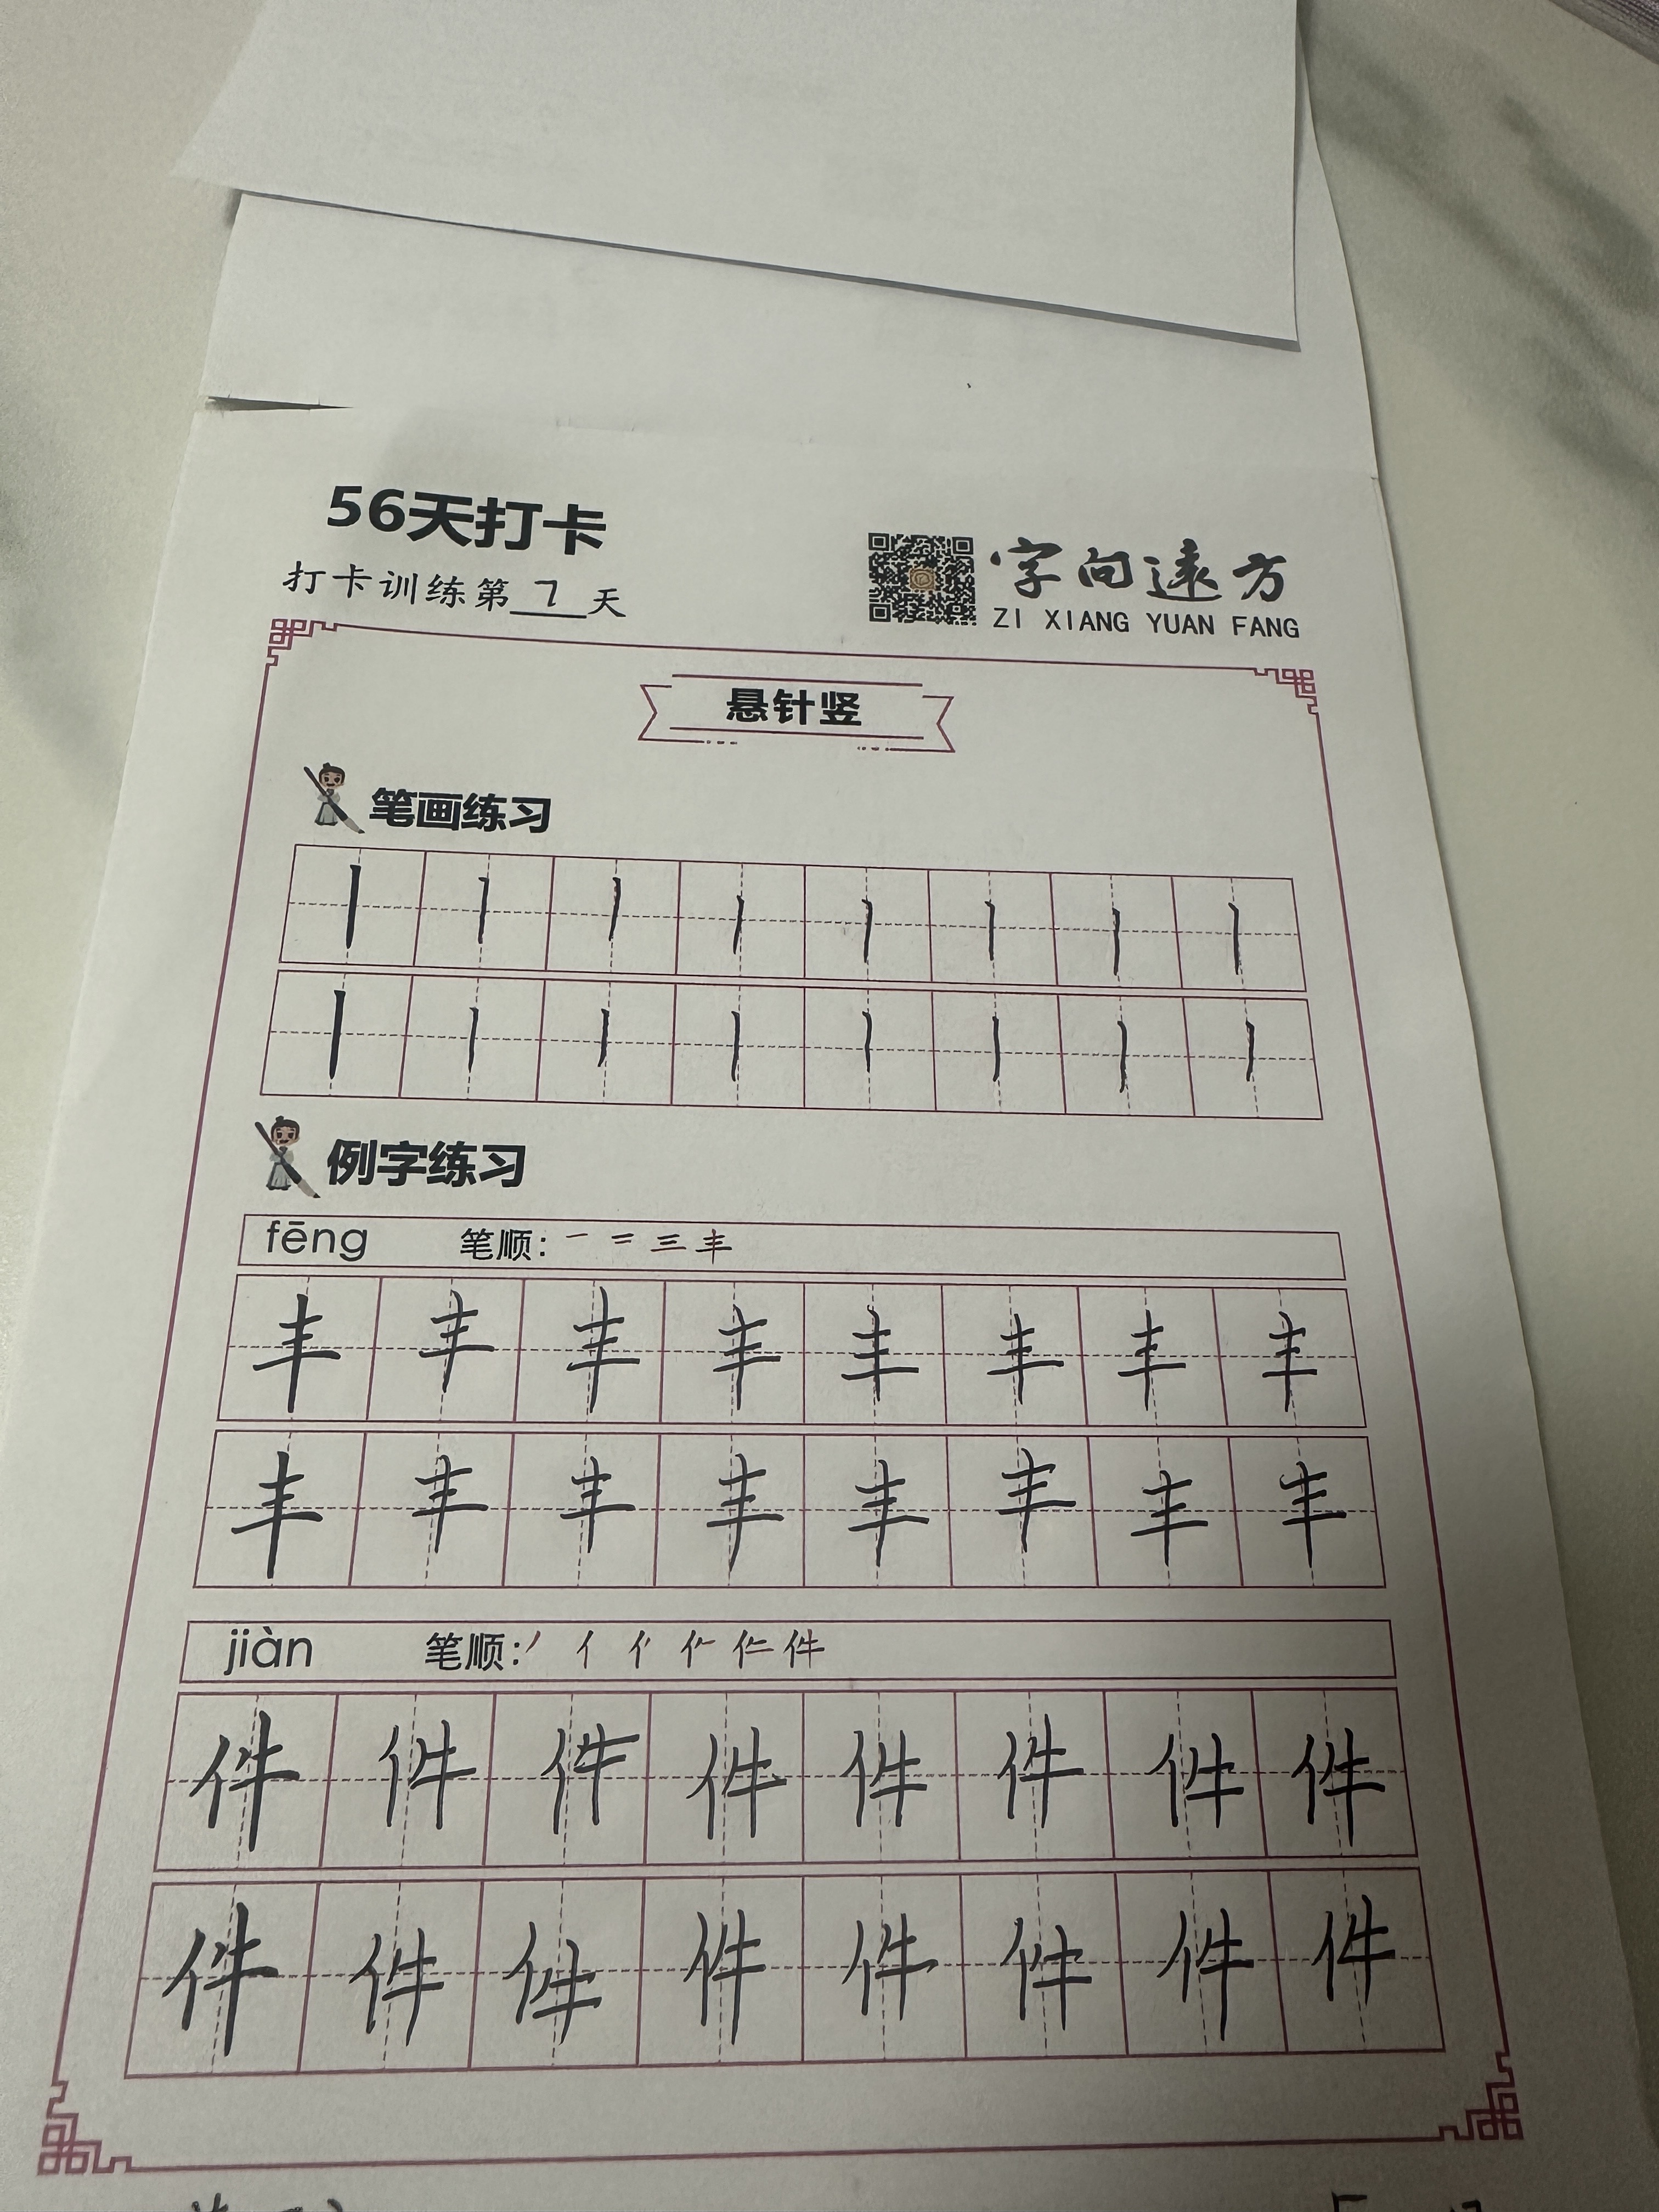 56天打卡
打卡训练第 7 天
字向遠方
ZI XIANG YUAN FANG
悬针竖
笔画练习
丨 丨 丨 丨 丨 丨 丨 丨
丨 丨 丨 丨 丨 丨 丨 丨
例字练习
fēng 笔顺: 一 二 三 丰
丰 丰 丰 丰 丰 丰 丰 丰
丰 丰 丰 丰 丰 丰 丰 丰
jiàn 笔顺: 丿 亻 件
件 件 件 件 件 件 件 件
件 件 件 件 件 件 件 件